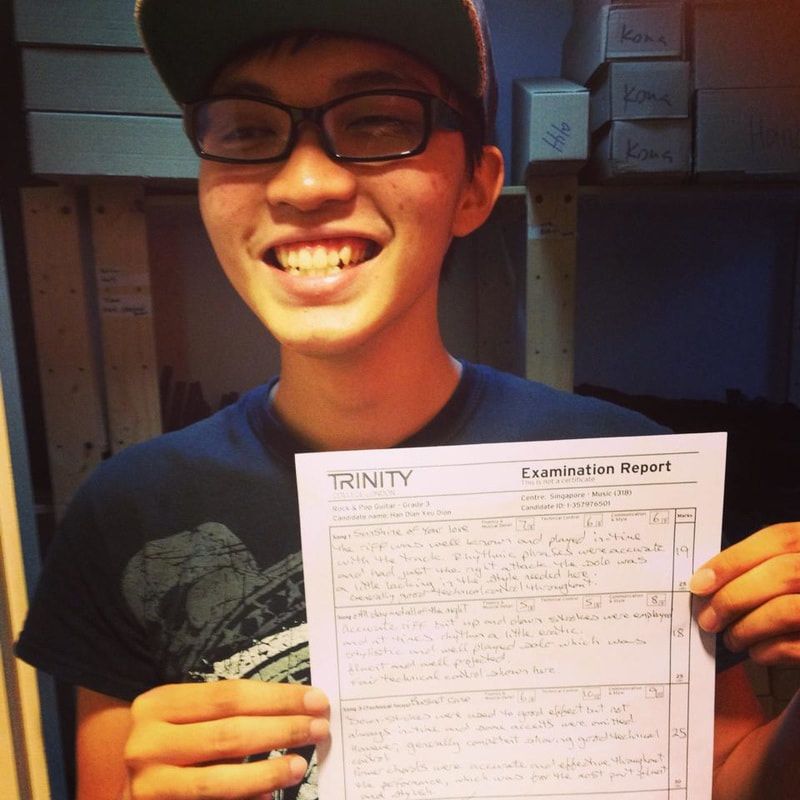 Kona
Kona
Kona
TRINITY
COLLEGE LONDON
Examination Report
This is not a certificate
Rock & Pop Guitar - Grade 3
Centre: Singapore - Music (318)
Candidate name: Han Dian Xeu Dion
Candidate ID: 1-357976501
Song 1 Sunshine of Your Love Fluency & Musical Detail 7 Technical Control 6 Communication & Style 6 Marks
The riff was well known and played in time
with the track. Rhythmic phrases were accurate
and had just the right attack the solo was
a little lacking in the style needed here.
Generally good technical control throughout.
19
25
Song 2 All day and all of the night Fluency & Musical Detail 5 Technical Control 5 Communication & Style 8
Accurate riff but up and down strokes were employed
and at times rhythm a little erratic.
Stylistic and well played solo which was
fluent and well projected
Fair technical control shown here
18
25
Song 3 (technical focus) Basket Case 6 Technical Control 10 Communication & Style 9
Down strokes were used to good effect but not
always in time and some accents were omitted
However, generally competent showing good technical
control
Power chords were accurate and effective throughout
the performance, which was for the most part fluent
and stylish
25
30